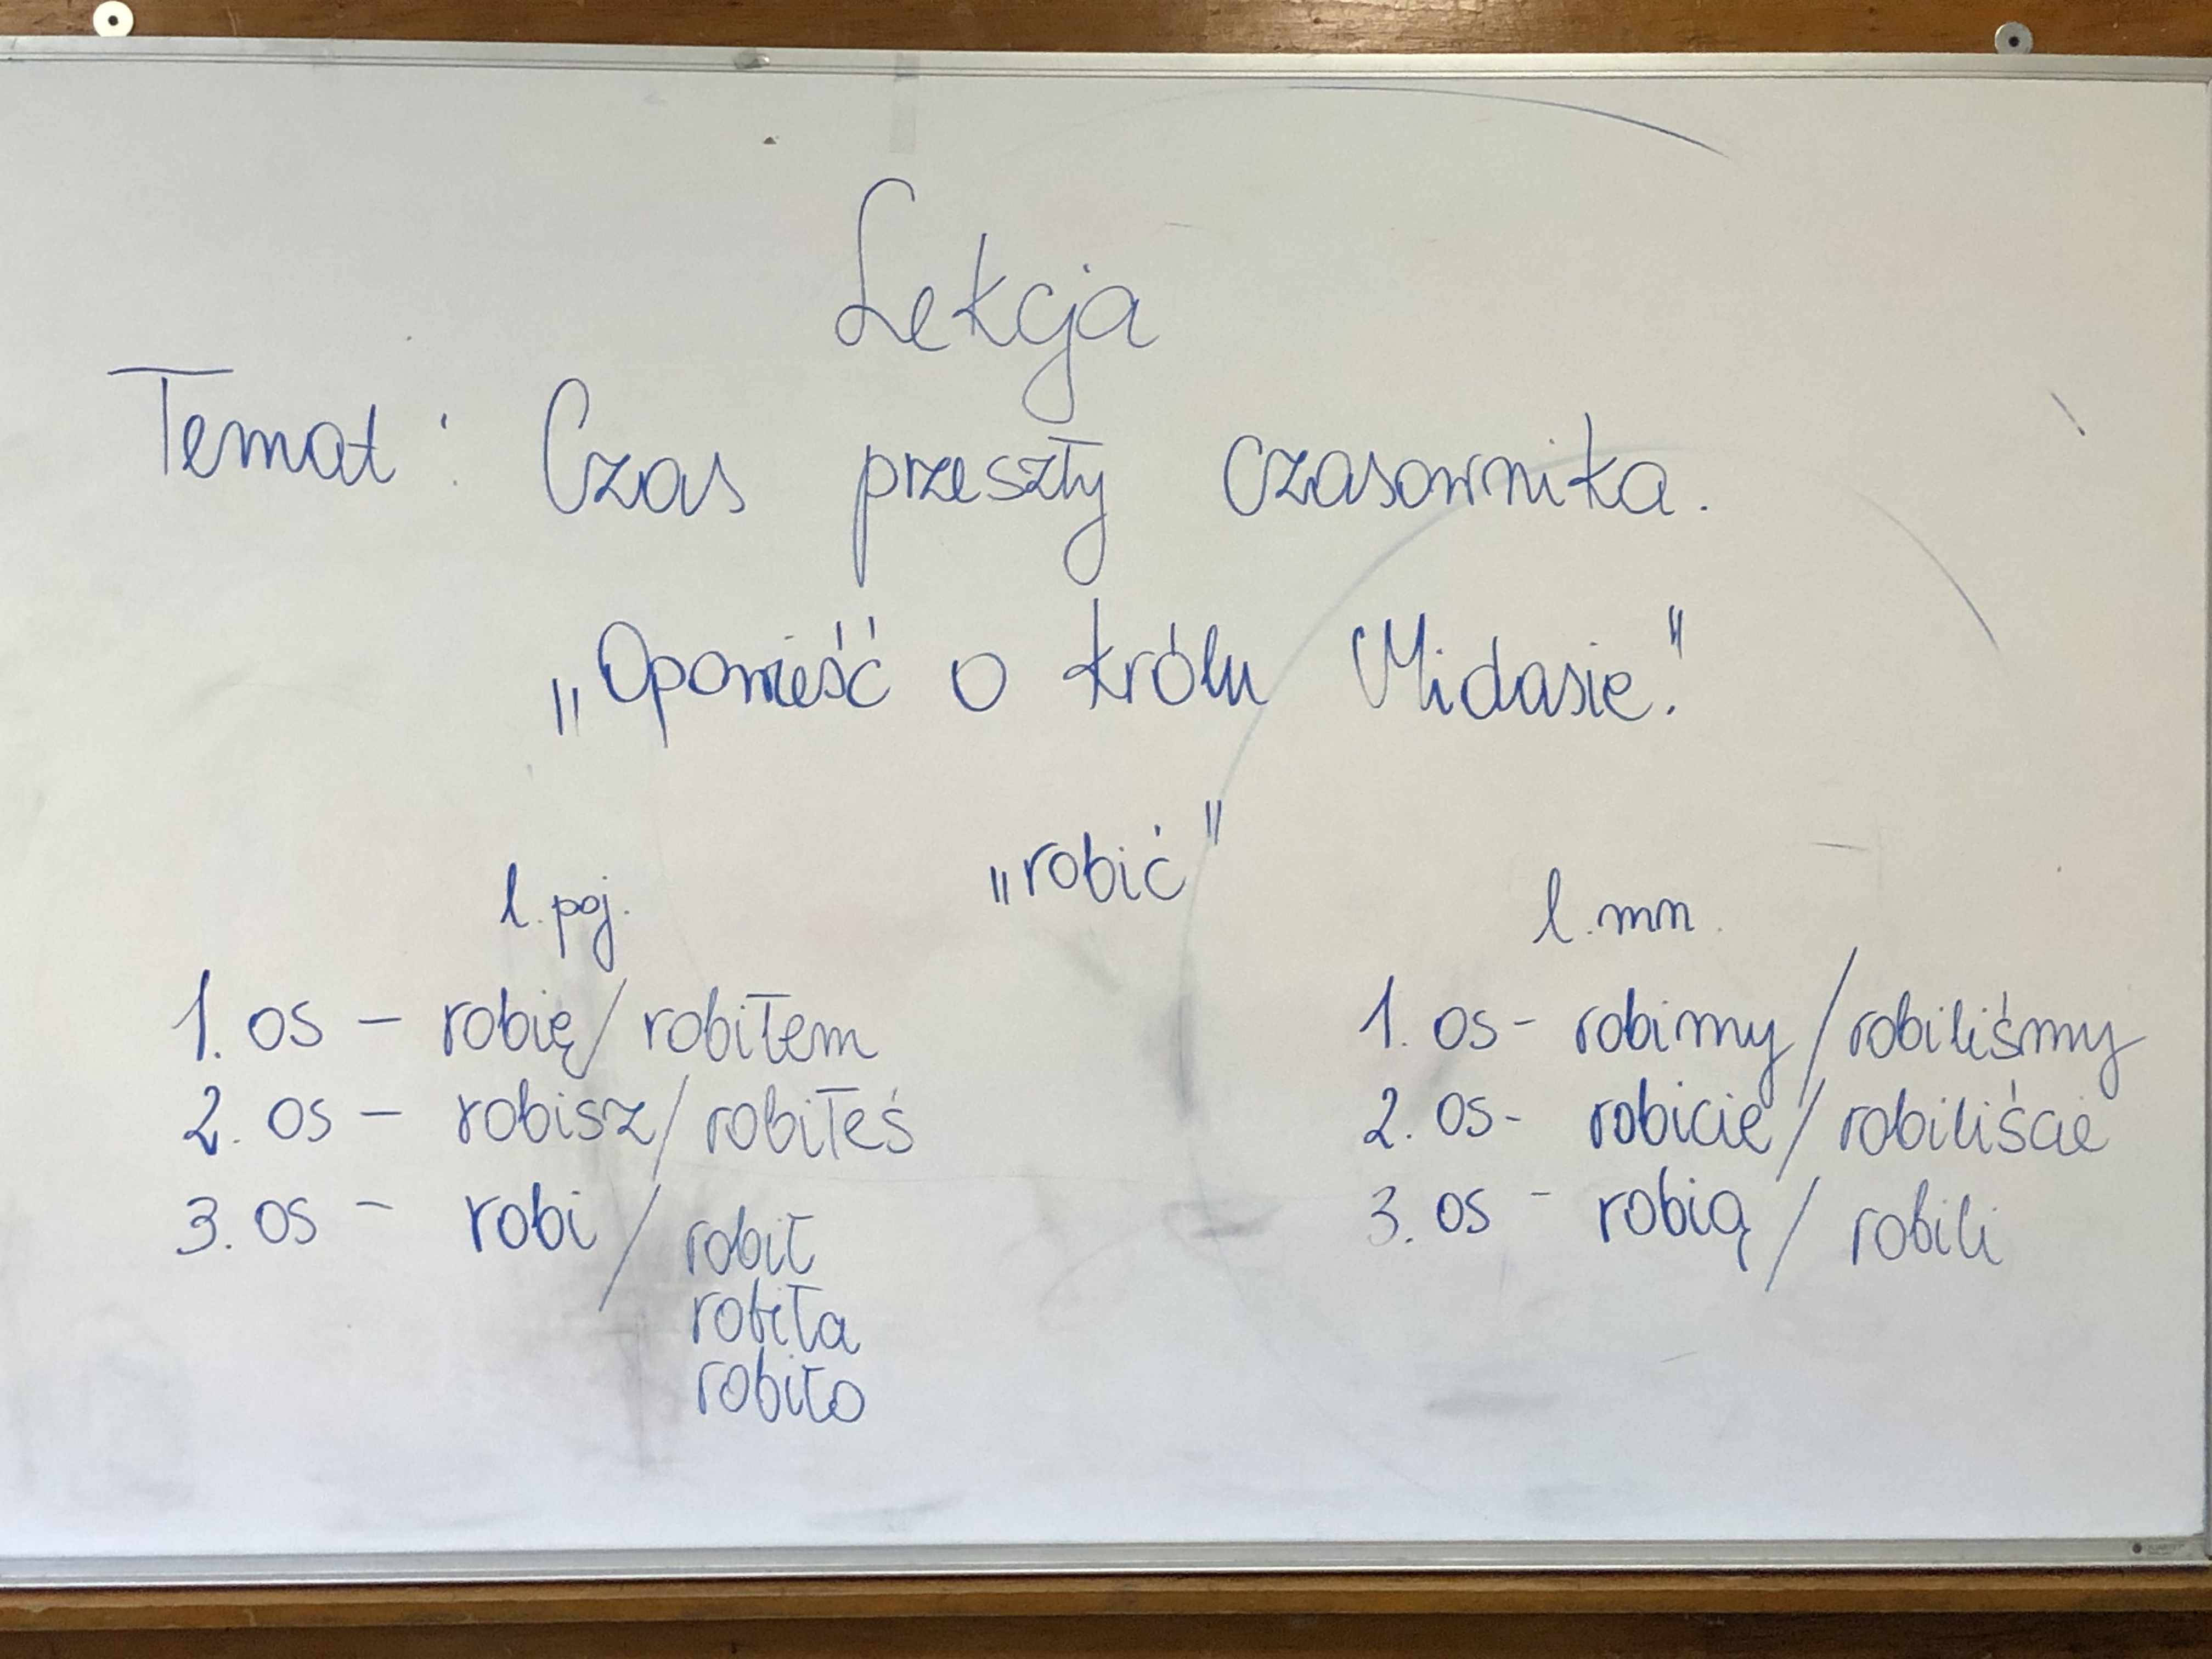 Lekcja
Temat: Czas przeszły czasownika.
„Opowieść o królu Midasie."
„robić"
l. poj.
1. os – robię/ robiłem
2. os – robisz/ robiłeś
3. os – robi/ robił
robiła
robiło
l. mn.
1. os - robimy/robiliśmy
2. os - robicie/robiliście
3. os - robią/ robili